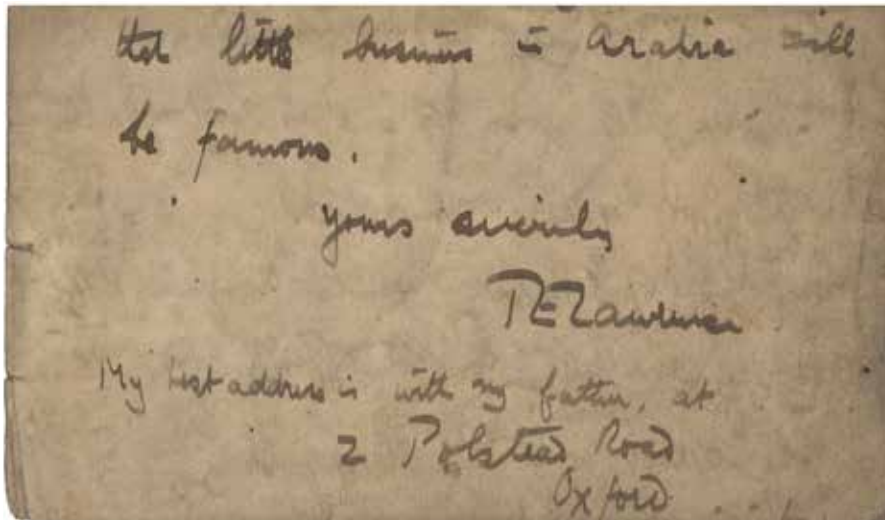 that little business in Arabia will
be famous.
yours sincerely
TELawrence
My best address is with my father, at
2 Polstead Road
Oxford